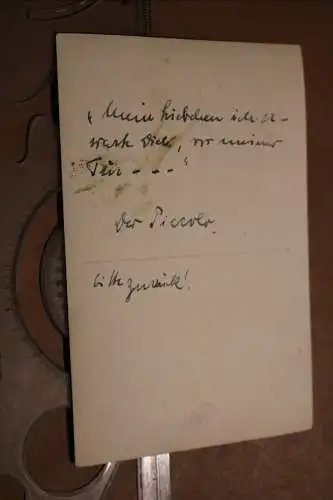 „Mein Liebchen ich er-
wart Dich, vor meiner
Tür - - - "
Der Piccolo.
bitte zurück!